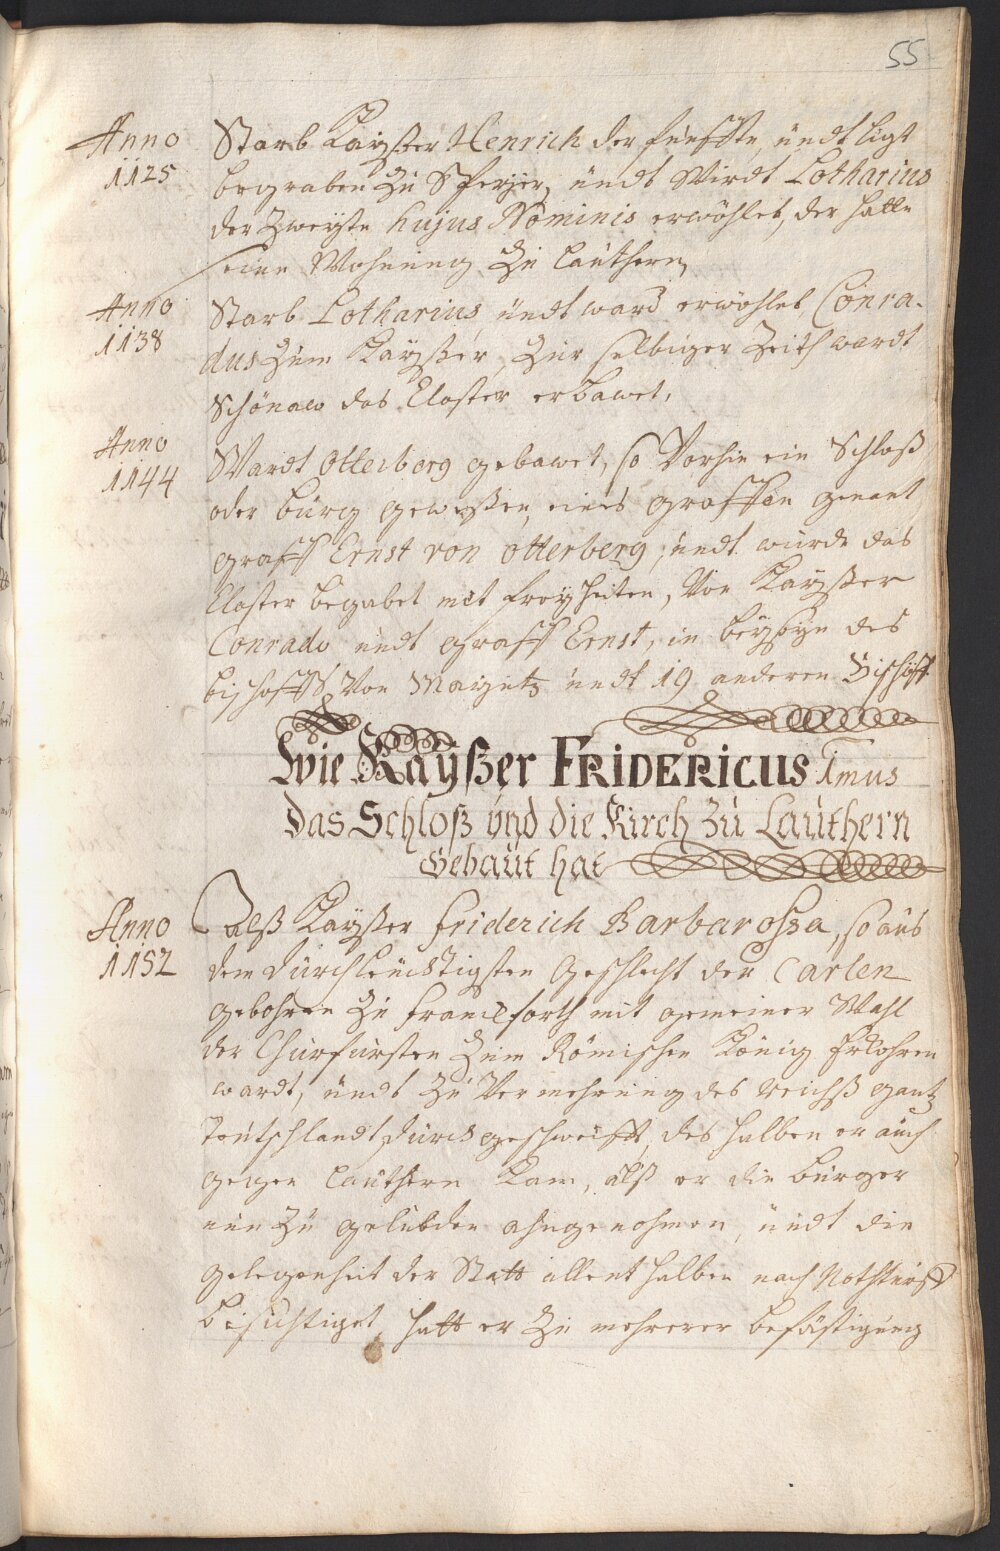 55
Anno
1125
Starb Kayßer Henrich der fünffte, undt ligt
begraben Zu Speyer, undt Wirdt Lotharius
der Zweyte hujus Nominis erwöhlet, der hatte
seine Wohnung Zu Lauthern,
Anno
1138
Starb Lotharius, undt ward erwöhlet Conra-
dus Zum Kayßer, Zur selbiger Zeith wardt
Schönaw das Closter erbawet,
Anno
1144
Wardt Otterberg gebawet, so Vorhin ein Schloß
oder burg geweßen, eines graffen genant
graff Ernst von otterberg; undt wurde das
Closter begabet mit freyheiten, Von Kayßer
Conrado undt graff Ernst, in beyseyn des
bischoffs Von Mayntz undt 19 anderen Bischöff
Wie Kayßer FRIDERICUS Imus
Das Schloß und die Kirch zu Lauthern
Gebaut hat
Anno
1152
Alß Kayßer friderich Barbarossa, so aus
dem Durchleuchtigsten Geschlecht der Carlen
gebohren Zu franckforth mit gemeiner Wahl
der Churfursten Zum Römischen König Erkohren
wardt, undt Zu Vermehrung des reichß gantz
Teutschlandt durchgeschweifft, deshalben er auch
gegen Lauthern Kam, alß er die bürger
nun Zu gelübden ahngenohmen, undt die
gelegenheit der Statt allenthalben nach Nothturfft
besichtiget, hatt er Zu mehrerer befästigung